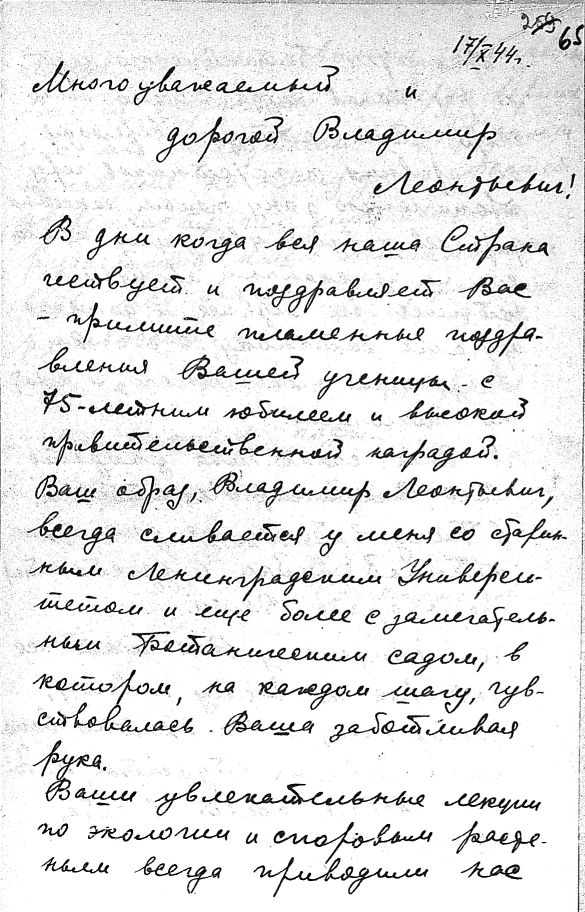 259 65
17/X 44г.
Многоуважаемый и
дорогой Владимир
Леонтьевич!
В дни когда вся наша Страна
чествует и поздравляет Вас
– примите пламенные поздра-
вления Вашей ученицы с
75-летним юбилеем и высокой
правительственной наградой.
Ваш образ, Владимир Леонтьевич,
всегда сливается у меня со старин-
ным Ленинградским Универси-
тетом и еще более с замечатель-
ным Ботаническим садом, в
котором, на каждом шагу, чув-
ствовалась Ваша заботливая
рука.
Ваши увлекательные лекции
по экологии и споровым расте-
ньям всегда приводили нас